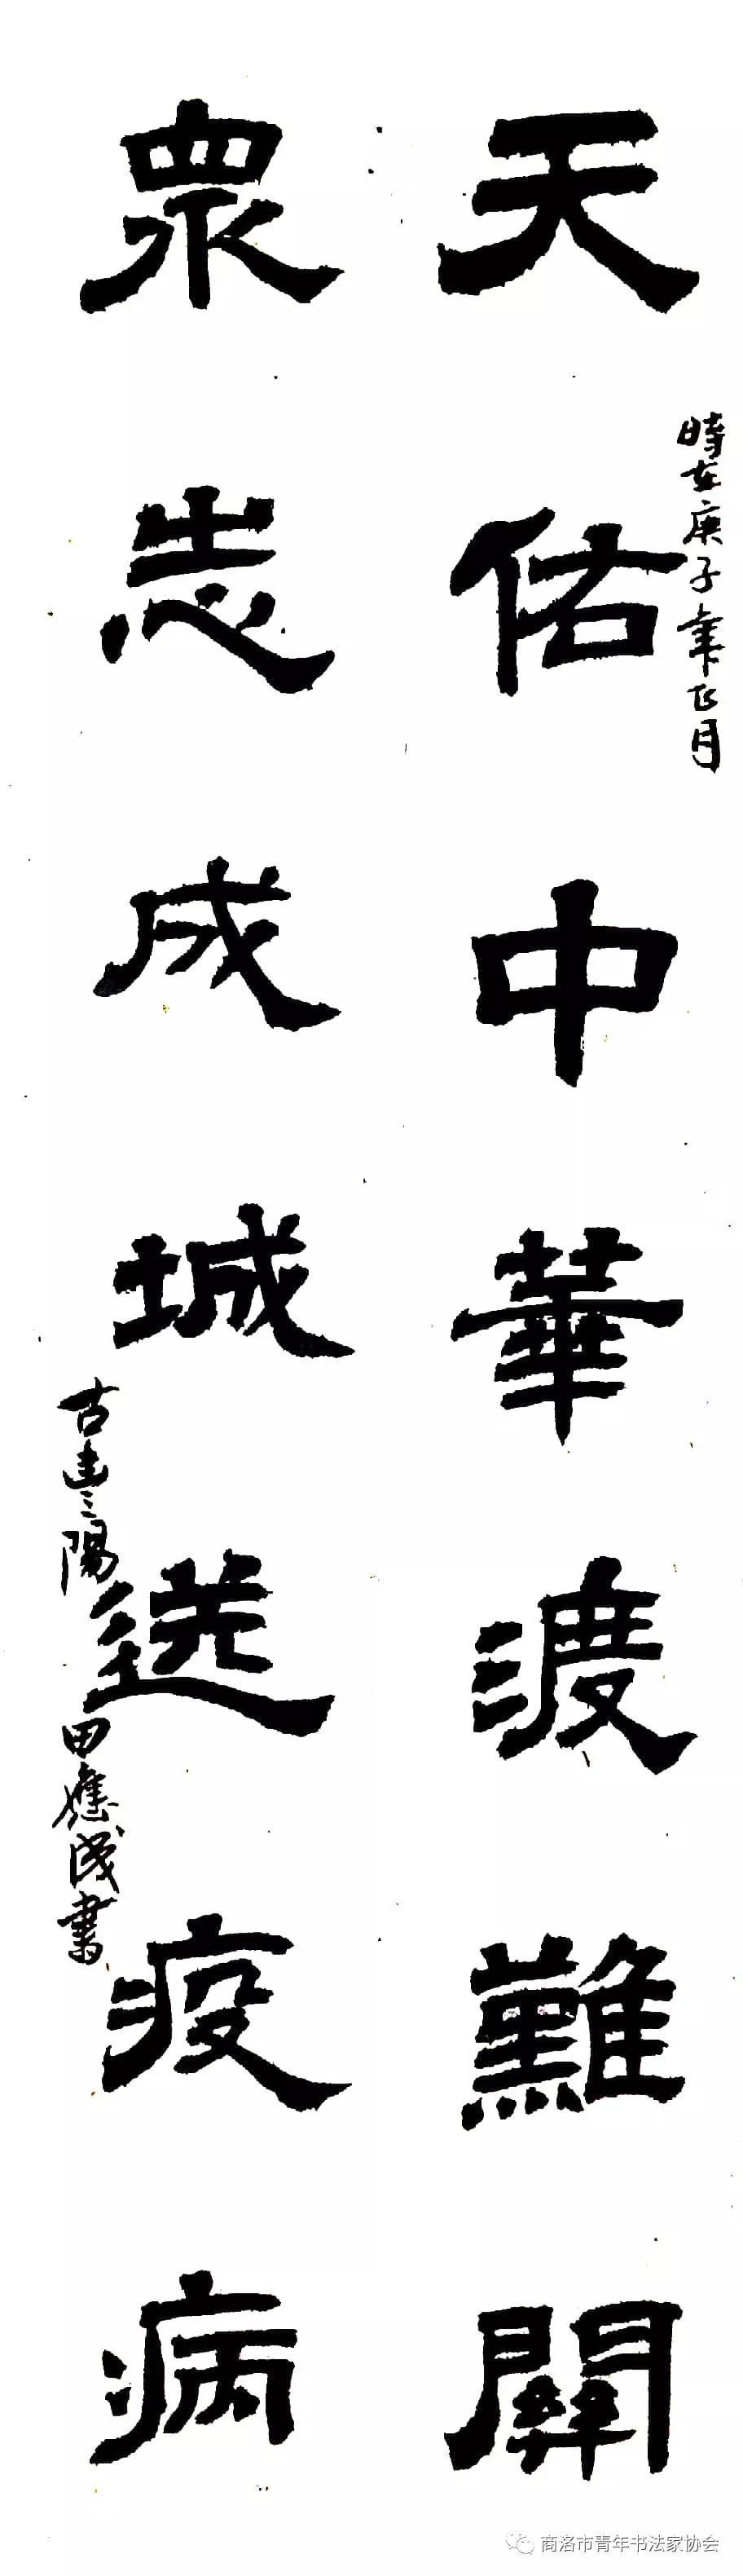 天佑中華渡難關
時在庚子年正月
眾志成城送疫病
古建之陽
田應成書
商洛市青年书法家协会